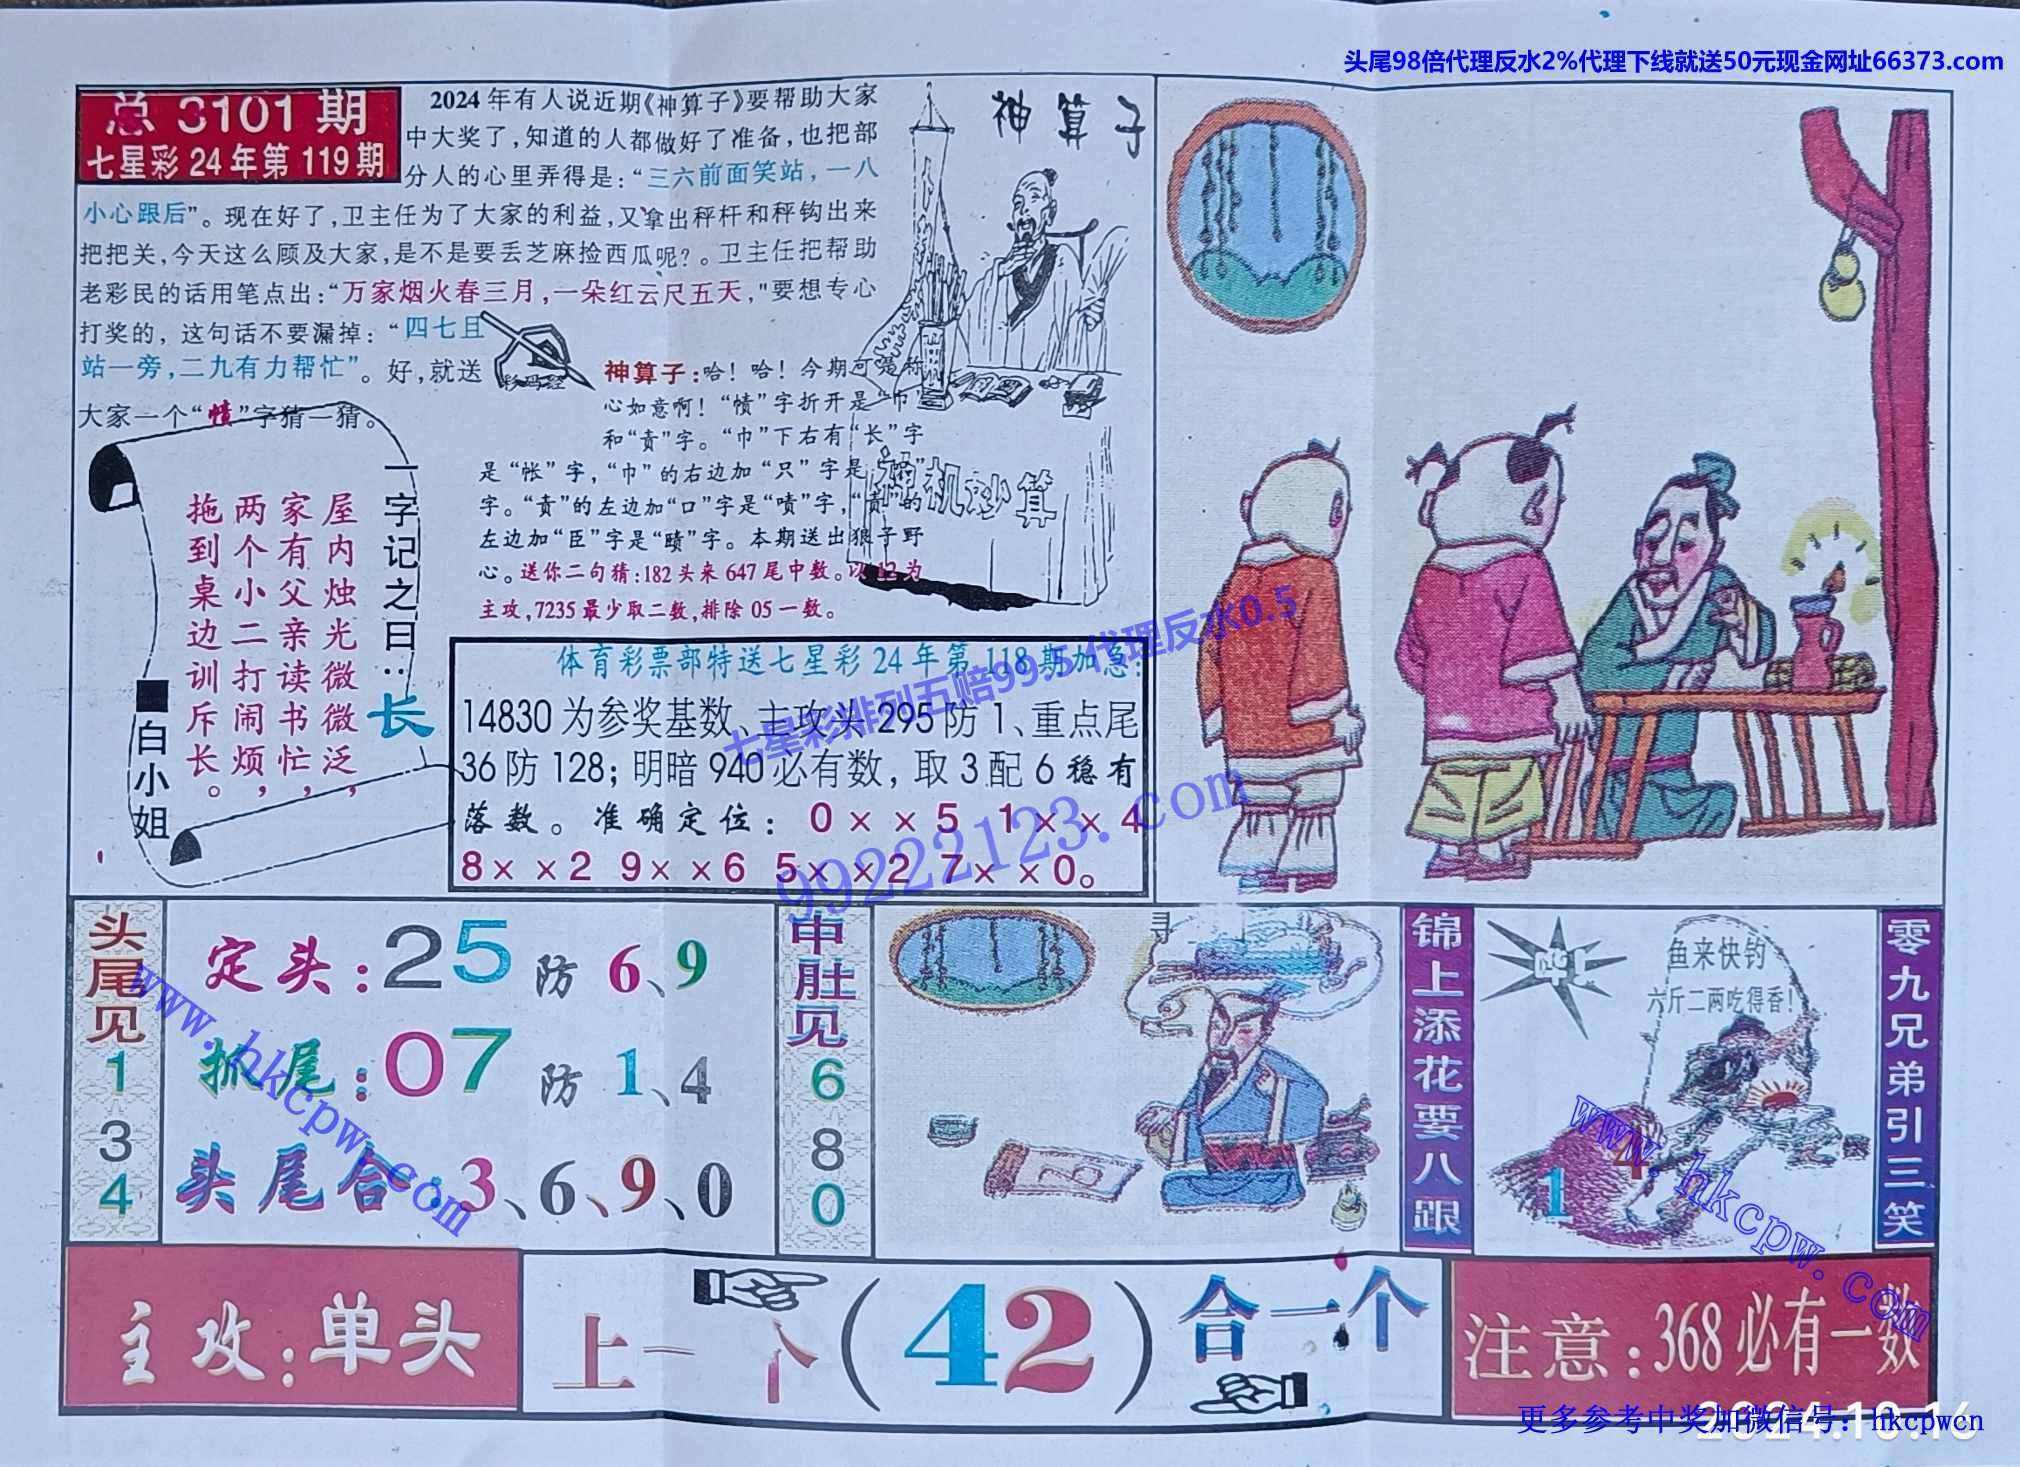 头尾98倍代理反水2%代理下线就送50元现金网址66373.com
总 3101 期
七星彩 24 年第 119 期
2024 年有人说近期《神算子》要帮助大家
中大奖了，知道的人都做好了准备，也把部
分人的心里弄得是：“三六前面笑站，一八
小心跟后”。现在好了，卫主任为了大家的利益，又拿出秤杆和秤钩出来
把把关，今天这么顾及大家，是不是要丢芝麻捡西瓜呢？。卫主任把帮助
老彩民的话用笔点出：“万家烟火春三月，一朵红云尺五天，"要想专心
打奖的，这句话不要漏掉：“四七且
站一旁，二九有力帮忙”。好，就送
大家一个“帻”字猜一猜。
彩码经
神算子
神机妙算
神算子：哈！哈！今期可是称
心如意啊！“帻”字折开是“巾”
和“责”字。“巾”下右有“长”字
是“帐”字，“巾”的右边加“只”字是
字。“责”的左边加“口”字是“啧”字，“责”的
左边加“臣”字是“赜”字。本期送出狼子野
心。送你二句猜：182头来647尾中数。以 12 为
主攻，7235最少取二数，排除 05 一数。
一字记之曰：长
屋内烛光微微泛，
家有父亲读书忙，
两个小二打闹烦，
拖到桌边训斥长。
白小姐
体育彩票部特送七星彩 24 年第 118 期加急：
14830 为参奖基数、主攻头 295 防 1、重点尾
36 防 128；明暗 940 必有数，取 3 配 6 稳有
落数。准确定位：0××5 1××4
8××2 9××6 5××2 7××0。
七星彩排列五赔99.5代理反水0.5
99222123.com
头尾见
1
3
4
定头：25 防 6、9
抓尾：07 防 1、4
头尾合：3、6、9、0
www.hkcpw.com
中肚见
6
8
0
寻
锦上添花要八跟
鱼来快钓
六斤二两吃得香！
1
4
www.hkcpw.com
零九兄弟引三笑
主攻：单头
上一个（42）合一个
注意：368必有一数
2024.10.16
更多参考中奖加微信号：hkcpwcn